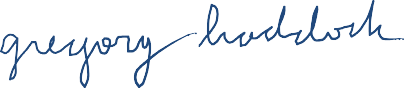 gregory haddock